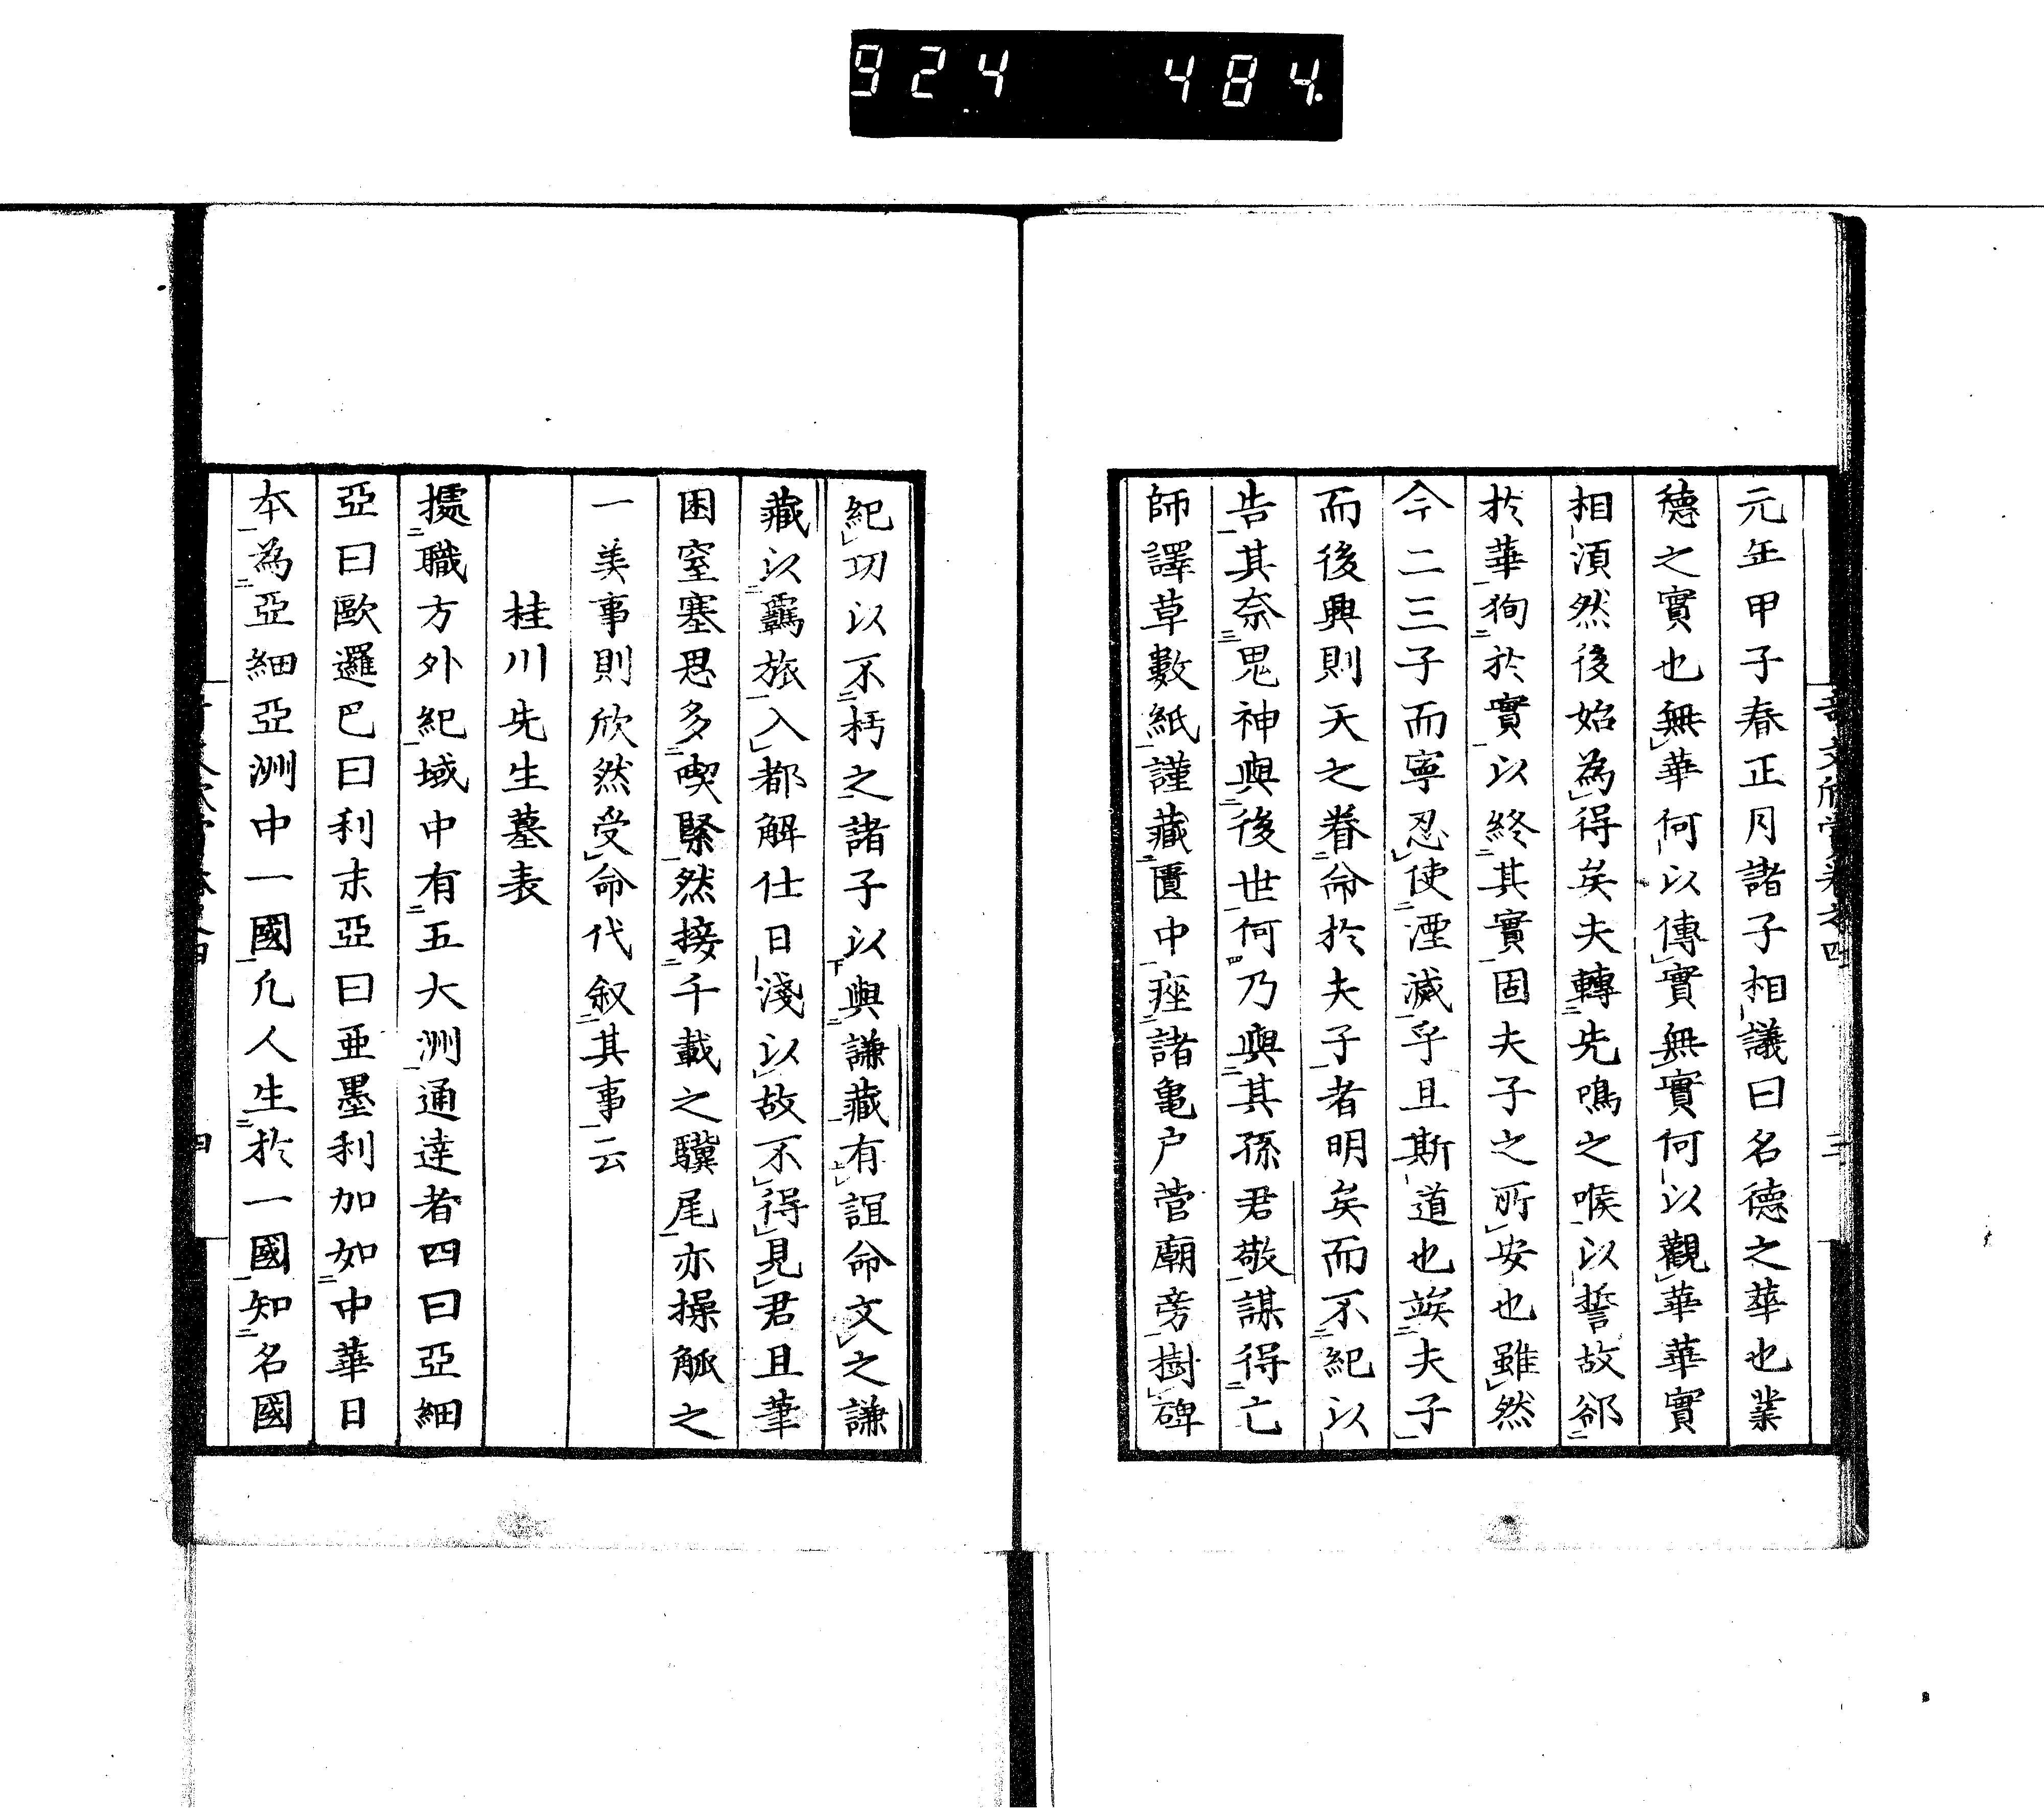 924 484.
元年甲子春正月諸子相議曰名德之華也業
德之實也無華何以傳實無實何以觀華華實
相須然後始為得矣夫轉先鳴之喉以誓故郤
於華狥於實以終其實固夫子之所安也雖然
今二三子而寧忍使湮滅乎且斯道也竢夫子
而後興則天之眷命於夫子者明矣而不紀以
告其奈鬼神與後世何乃與其孫君敬謀得亡
師譯草數紙謹藏匱中瘞諸亀户菅廟旁樹碑
紀功以不朽之諸子以與謙藏有誼命文之謙
藏以羈旅入都解仕日淺以故不得見君且筆
困窒塞思多喫緊然接千載之驥尾亦操觚之
一美事則欣然受命代叙其事云
桂川先生墓表
據職方外紀域中有五大洲通達者四曰亞細
亞曰歐邏巴曰利未亞曰亜墨利加如中華日
本為亞細亞洲中一國凢人生於一國知名國